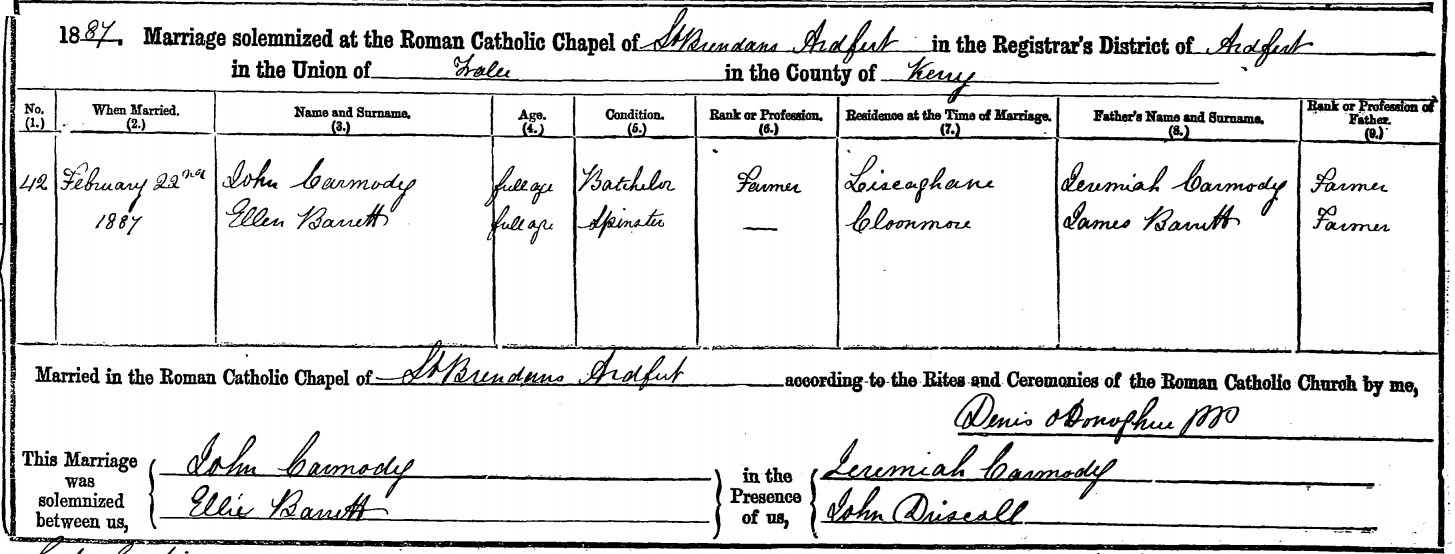 1887. Marriage solemnized at the Roman Catholic Chapel of St Brendans Ardfert in the Registrar's District of Ardfert
in the Union of Tralee in the County of Kerry
No. (1.) When Married. (2.) Name and Surname. (3.) Age. (4.) Condition. (5.) Rank or Profession. (6.) Residence at the Time of Marriage. (7.) Father's Name and Surname. (8.) Rank or Profession of Father. (9.)
42 February 22nd John Carmody full age Batchelor Farmer Liscaghane Jeremiah Carmody Farmer
1887 Ellen Barrett full age Spinster — Cloonmore James Barrett Farmer
Married in the Roman Catholic Chapel of St Brendans Ardfert according to the Rites and Ceremonies of the Roman Catholic Church by me,
Denis O'Donoghue PP
This Marriage was solemnized between us, John Carmody in the Presence of us, Jeremiah Carmody
Ellie Barrett John Driscoll